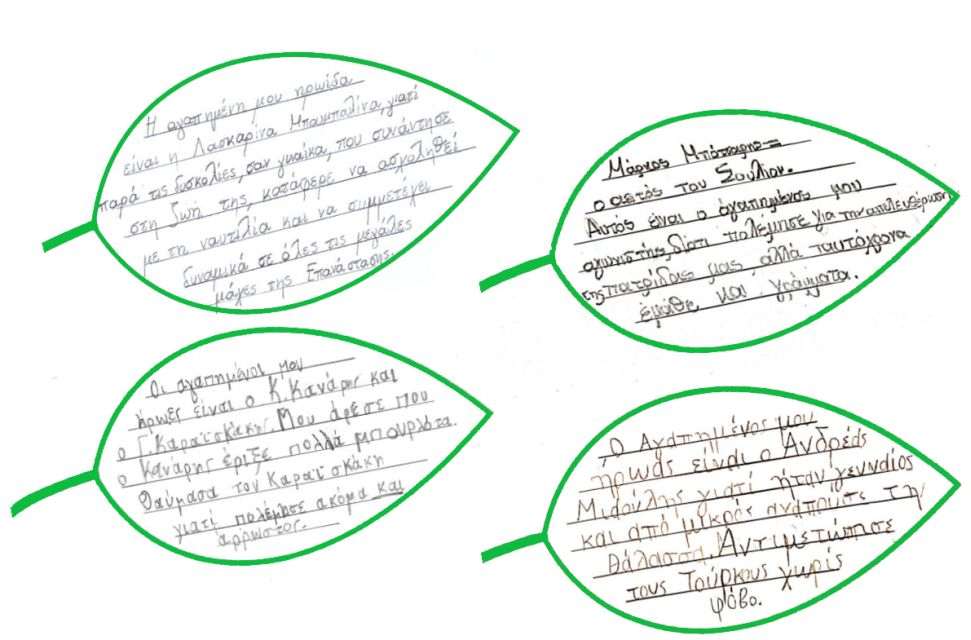 Η αγαπημένη μου ηρωίδα
είναι η Λασκαρίνα Μπουμπουλίνα, γιατί
παρά τις δυσκολίες, σαν γυναίκα, που συνάντησε
στη ζωή της, κατάφερε να ασχοληθεί
με τη ναυτιλία και να συμμετέχει
δυναμικά σε όλες τις μεγάλες
μάχες της Επανάστασης.
Μάρκος Μπότσαρης =
ο αετός του Σουλίου.
Αυτός είναι ο αγαπημένος μου
αγωνιστής, διότι πολέμησε για την απελευθέρωση
της πατρίδας μας, αλλά ταυτόχρονα
έμαθε και γράμματα.
Οι αγαπημένοι μου
ήρωες είναι ο Κ. Κανάρης και
ο Γ. Καραϊσκάκης. Μου άρεσε που
ο Κανάρης έριξε πολλά μπουρλότα.
Θαύμασα τον Καραϊσκάκη
γιατί πολέμησε ακόμα και
άρρωστος.
Ο Αγαπημένος μου
ήρωας είναι ο Ανδρέας
Μιαούλης γιατί ήταν γενναίος
και από μικρός αγαπούσε τη
θάλασσα. Αντιμετώπισε
τους Τούρκους χωρίς
φόβο.